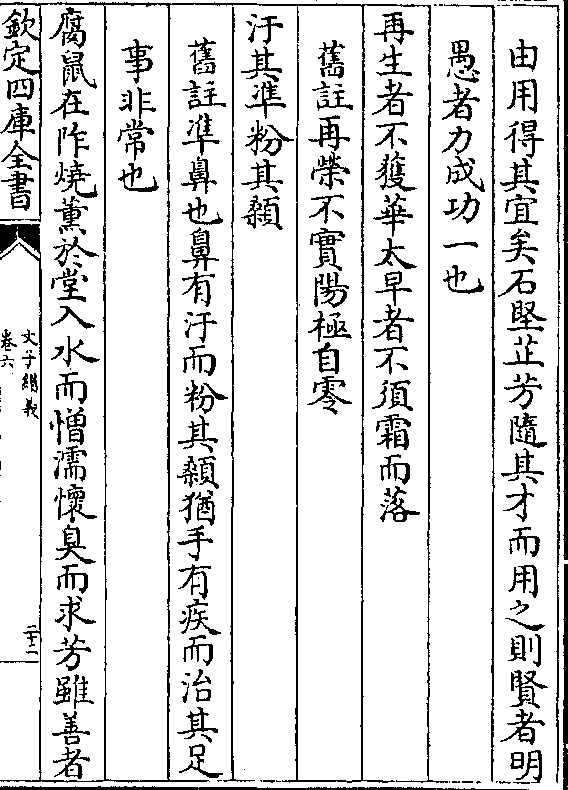 由用得其宜矣石堅芷芳隨其才而用之則賢者明
愚者力成功一也
再生者不獲華太早者不須霜而落
舊註再榮不實陽極自零
汙其準粉其顙
舊註準鼻也鼻有汙而粉其顙猶手有疾而治其足
事非常也
腐鼠在阼燒薫於堂入水而憎濡懷臭而求芳雖善者
欽定四庫全書
文子纘義
卷六
二十二